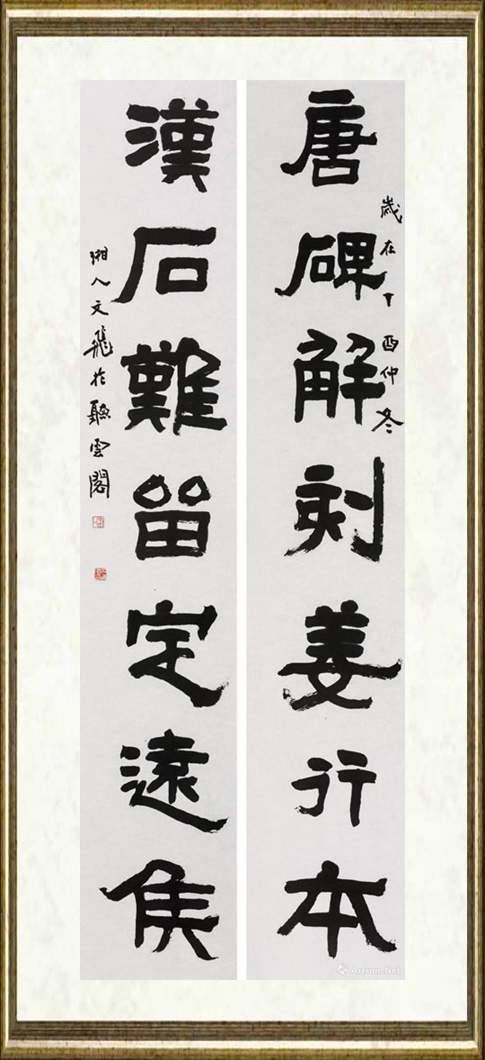 唐碑解刻姜行本
歲在丁酉仲冬
漢石難留定遠侯
湘人文飛於聽雲閣
Artron.Net